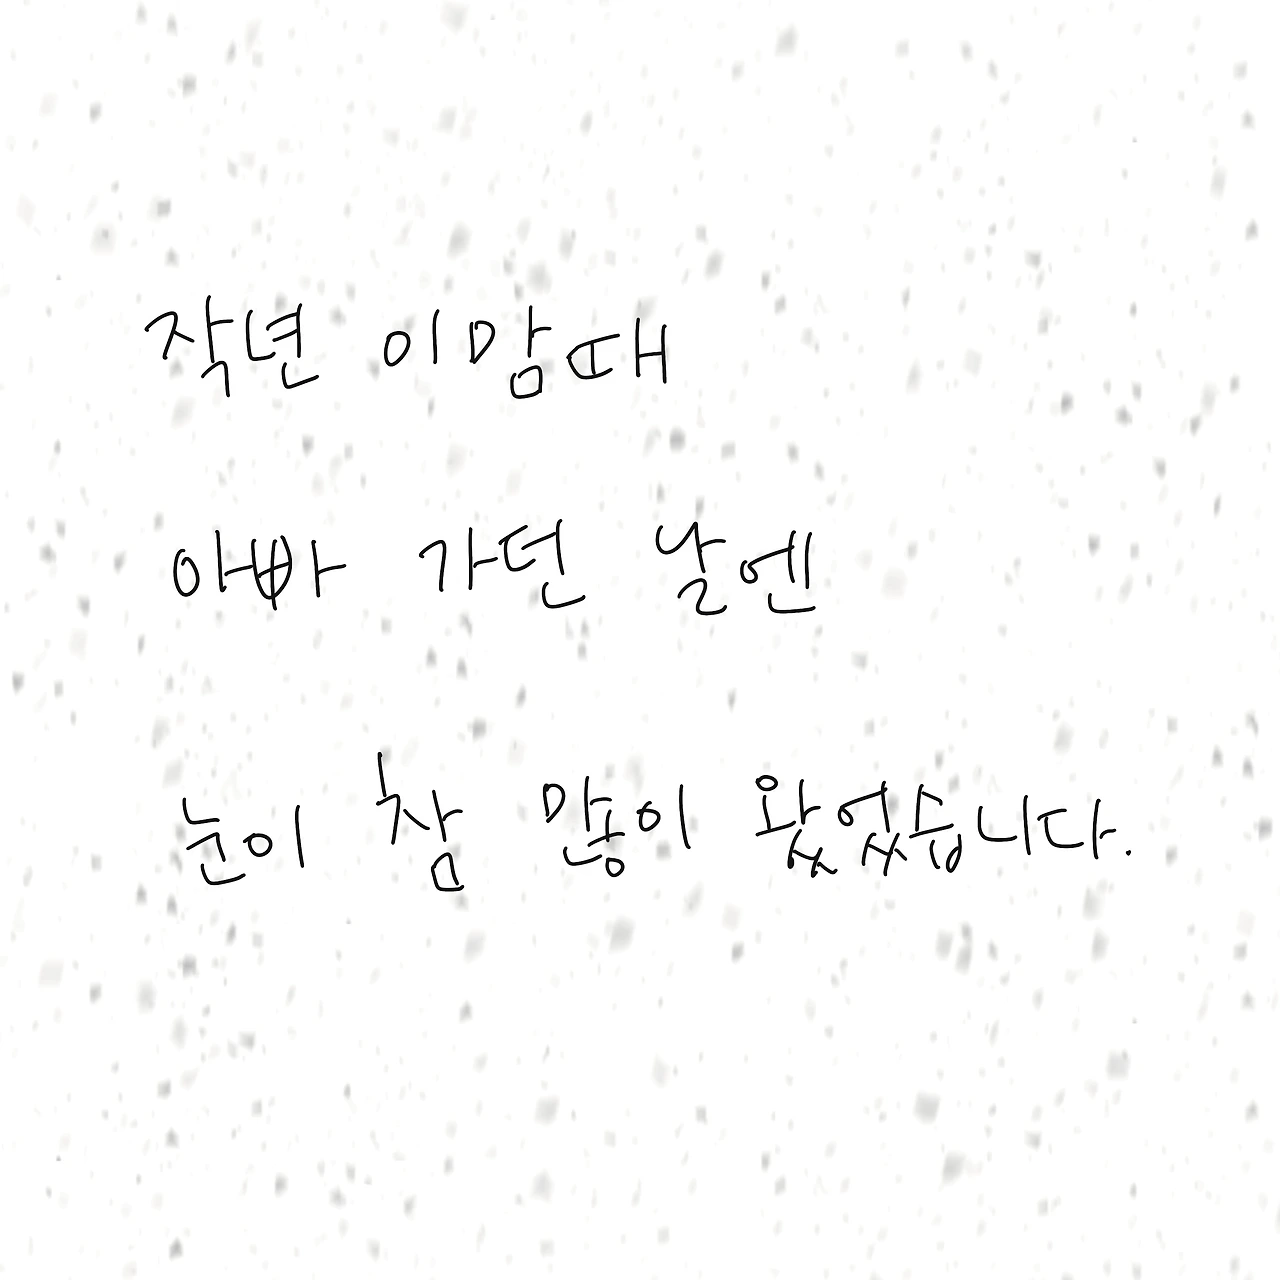 작년 이맘때
아빠 가던 날엔
눈이 참 많이 왔었습니다.